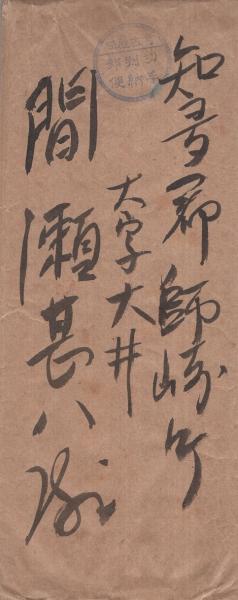 知多郡師崎町
大字大井
間瀬甚八殿